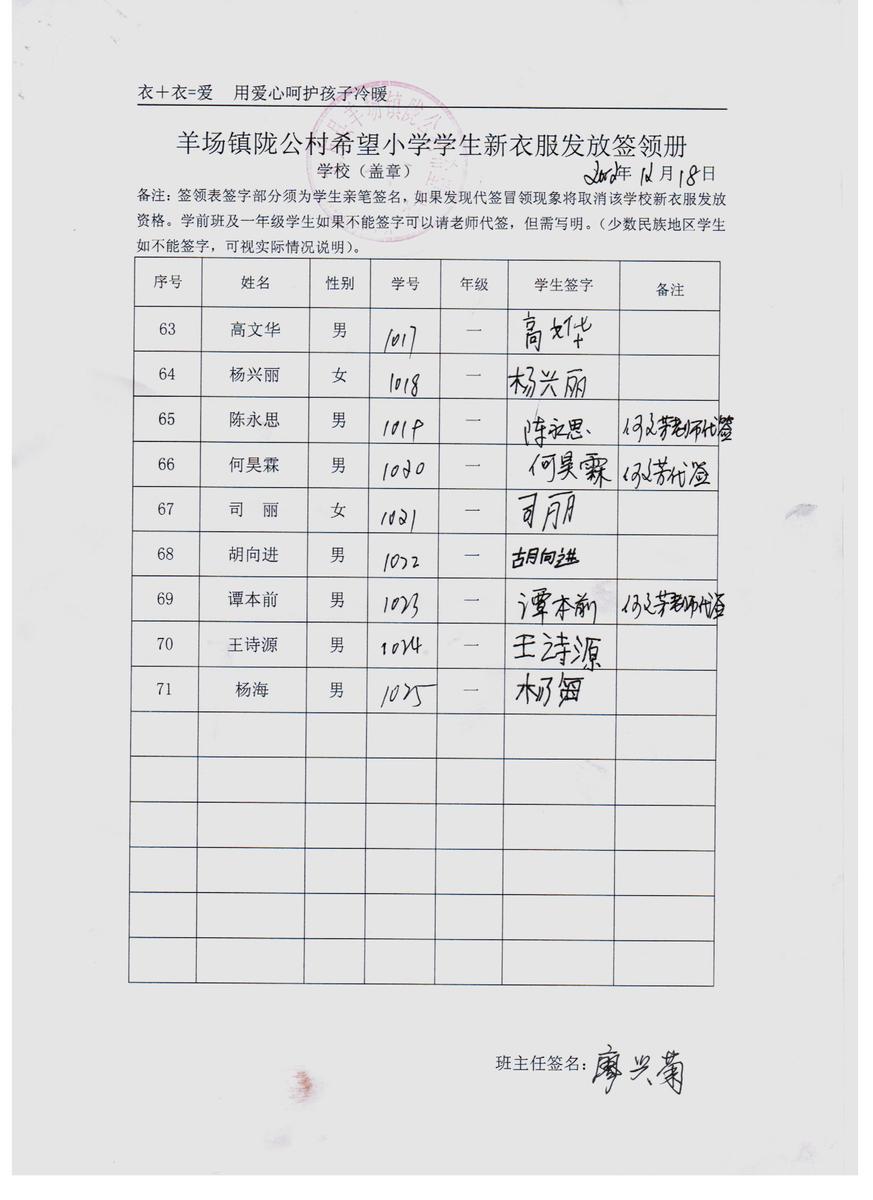 衣＋衣=爱　用爱心呵护孩子冷暖
羊场镇陇公村希望小学学生新衣服发放签领册
学校（盖章） 2012年 12月 18日
备注：签领表签字部分须为学生亲笔签名，如果发现代签冒领现象将取消该学校新衣服发放
资格。学前班及一年级学生如果不能签字可以请老师代签，但需写明。（少数民族地区学生
如不能签字，可视实际情况说明）。
序号 姓名 性别 学号 年级 学生签字 备注
63 高文华 男 1017 一 高文华
64 杨兴丽 女 1018 一 杨兴丽
65 陈永思 男 1019 一 陈永思 何文芳老师代签
66 何昊霖 男 1020 一 何昊霖 何文芳代签
67 司 丽 女 1021 一 司丽
68 胡向进 男 1022 一 胡向进
69 谭本前 男 1023 一 谭本前 何文芳老师代签
70 王诗源 男 1024 一 王诗源
71 杨海 男 1025 一 杨海
班主任签名：廖兴菊